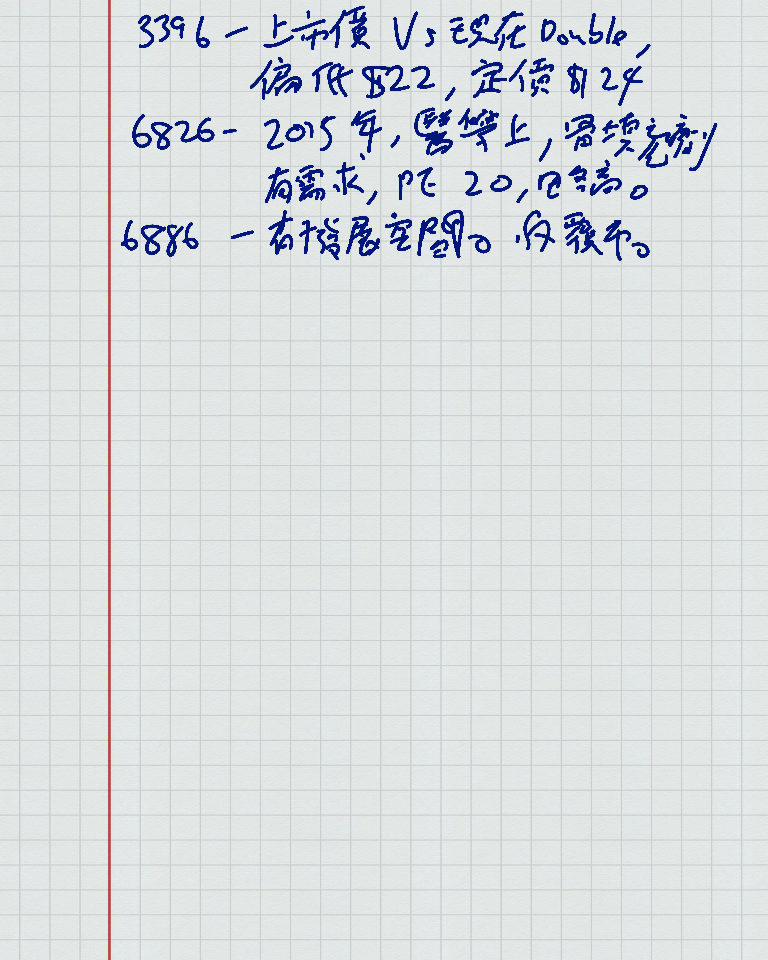 3396 - 上市價 Vs 現在 Double,
偏低 $22, 定價 $24
6826 - 2015年, 醫學上, 骨填充劑
有需求, PE 20, 高。
6886 - 有發展空間。反覆市。